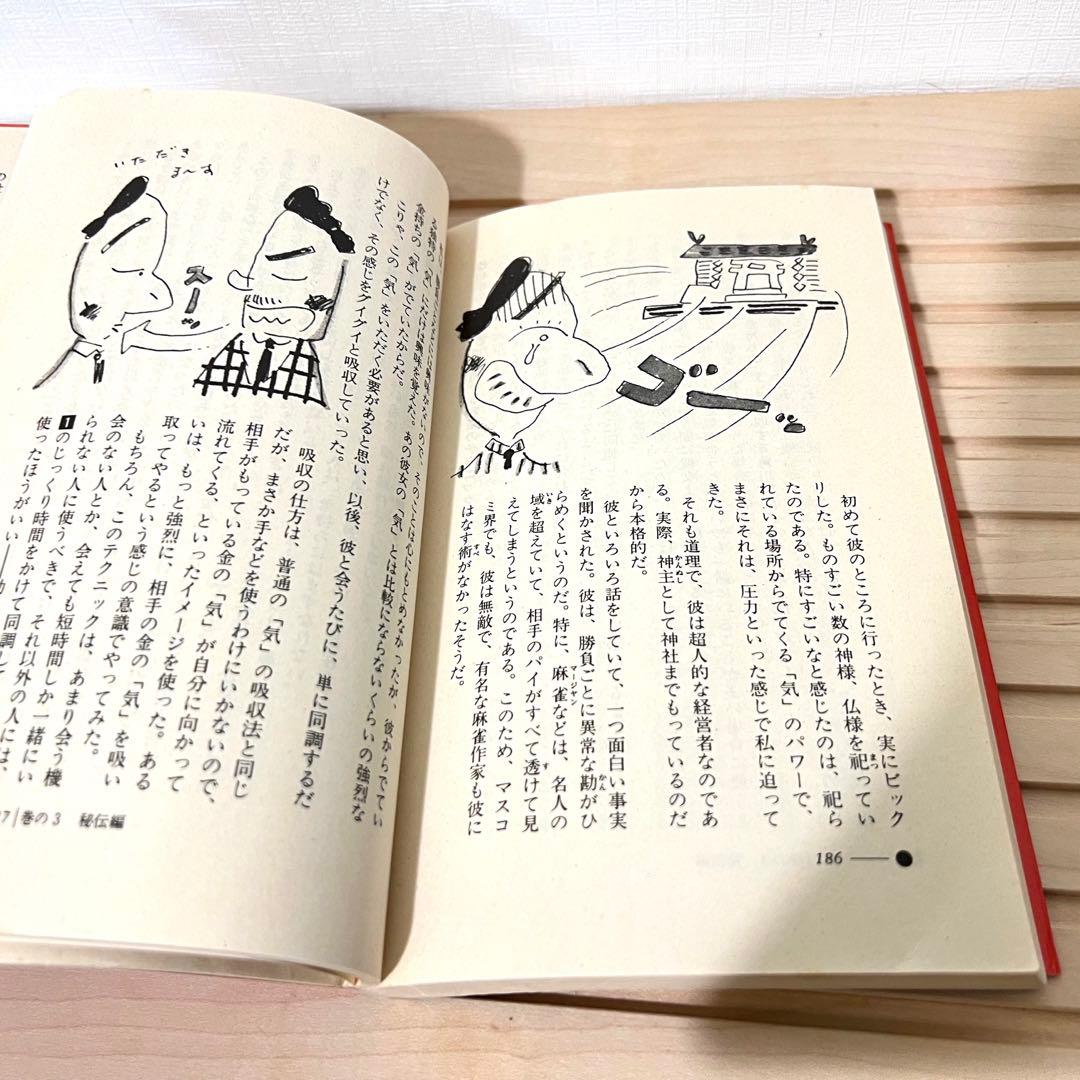 ゴーッ
初めて彼のところに行ったとき、実にビック
りした。ものすごい数の神様、仏様を祀ってい
たのである。特にすごいなと感じたのは、祀ら
れている場所からでてくる「気」のパワーで、
まさにそれは、圧力といった感じで私に迫って
きた。
それも道理で、彼は超人的な経営者なのであ
る。実際、神主として神社までもっているのだ
から本格的だ。
彼といろいろ話をしていて、一つ面白い事実
を聞かされた。彼は、勝負ごとに異常な勘がひ
らめくというのだ。特に、麻雀などは、名人の
域を超えていて、相手のパイがすべて透けて見
えてしまうというのである。このため、マスコ
ミ界でも、彼は無敵で、有名な麻雀作家も彼に
はなす術がなかったそうだ。
186
いただき
ま〜す
スーッ
のことは心にもとめなかったが、彼からでてい
る独特の「気」にだけは興味を覚えた。あの彼女の「気」とは比較にならないくらいの強烈な
金持ちの「気」がでていたからだ。
こりゃ、この「気」をいただく必要があると思い、以後、彼と会うたびに、単に同調するだ
けでなく、その感じをグイグイと吸収していった。
吸収の仕方は、普通の「気」の吸収法と同じ
だが、まさか手などを使うわけにいかないので、
相手がもっている金の「気」が自分に向かって
流れてくる、といったイメージを使った。ある
いは、もっと強烈に、相手の金の「気」を吸い
取ってやるという感じの意識でやってみた。
もちろん、このテクニックは、あまり会う機
会のない人とか、会えても短時間しか一緒にい
られない人に使うべきで、それ以外の人には、
1のじっくり時間をかけて同調して
使ったほうがいい——
7 巻の3 秘伝編